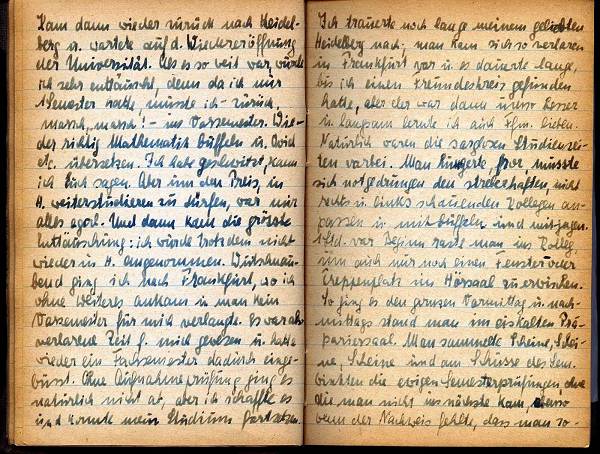 Kam dann wieder zurück nach Heidel-
berg u. wartete auf d. Wiedereröffnung
der Universität. Als es so weit war, wurde
ich sehr enttäuscht, denn da ich nur
1 Semester hatte musste ich - zurück,
marsch, marsch! - ins Vorsemester. Wie-
der richtig Mathematik büffeln u. Ovid
etc. übersetzen. Ich hab geschwitzt, kann
ich Euch sagen. Aber um den Preis, in
H. weiterstudieren zu dürfen, war mir
alles egal. Und dann kam die grösste
Enttäuschung: ich wurde trotzdem nicht
wieder in H. angenommen. Wutschnau-
bend ging ich nach Frankfurt, wo ich
ohne Weiteres ankam u. man kein
Vorsemester für mich verlangte. Es war also
verlorene Zeit f. mich gewesen u. hatte
wieder ein Fachsemester dadurch einge-
büsst. Ohne Aufnahmeprüfung ging es
natürlich nicht ab, aber ich schaffte es
und konnte mein Studium fortsetzen.
Ich trauerte noch lange meinem geliebten
Heidelberg nach, man kam sich so verloren
in Frankfurt vor u. es dauerte lange,
bis ich einen Freundeskreis gefunden
hatte, aber der war dann umso besser
u. langsam lernte ich auch Ffm. lieben.
Natürlich waren die sorglosen Studienzei-
ten vorbei. Man hungerte, fror, musste
sich notgedrungen den streberhaften, nicht
rechts u. links schauenden Kollegen an-
passen u. mitbüffeln und mitjagen.
1 Std. vor Beginn raste man ins Kolleg,
um auch nur noch einen Fenster oder
Treppenplatz im Hörsaal zu erwischen.
So ging es den ganzen Vormittag u. nach-
mittags stand man im eiskalten Prä-
pariersaal. Man sammelte Scheine, Schei-
ne, Scheine und am Schlusse des Sem.
die ewigen Semesterprüfungen ohne
die man nicht ins nächste kam, ebenso
wenn der Nachweis fehlte, dass man so-